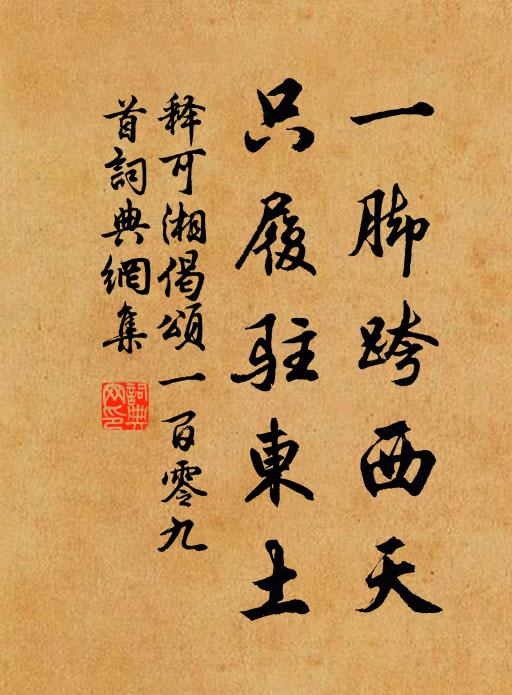 一脚跨西天
只履驻東土
释可湘偈頌一百零九
首詞典網集
詞典
网印